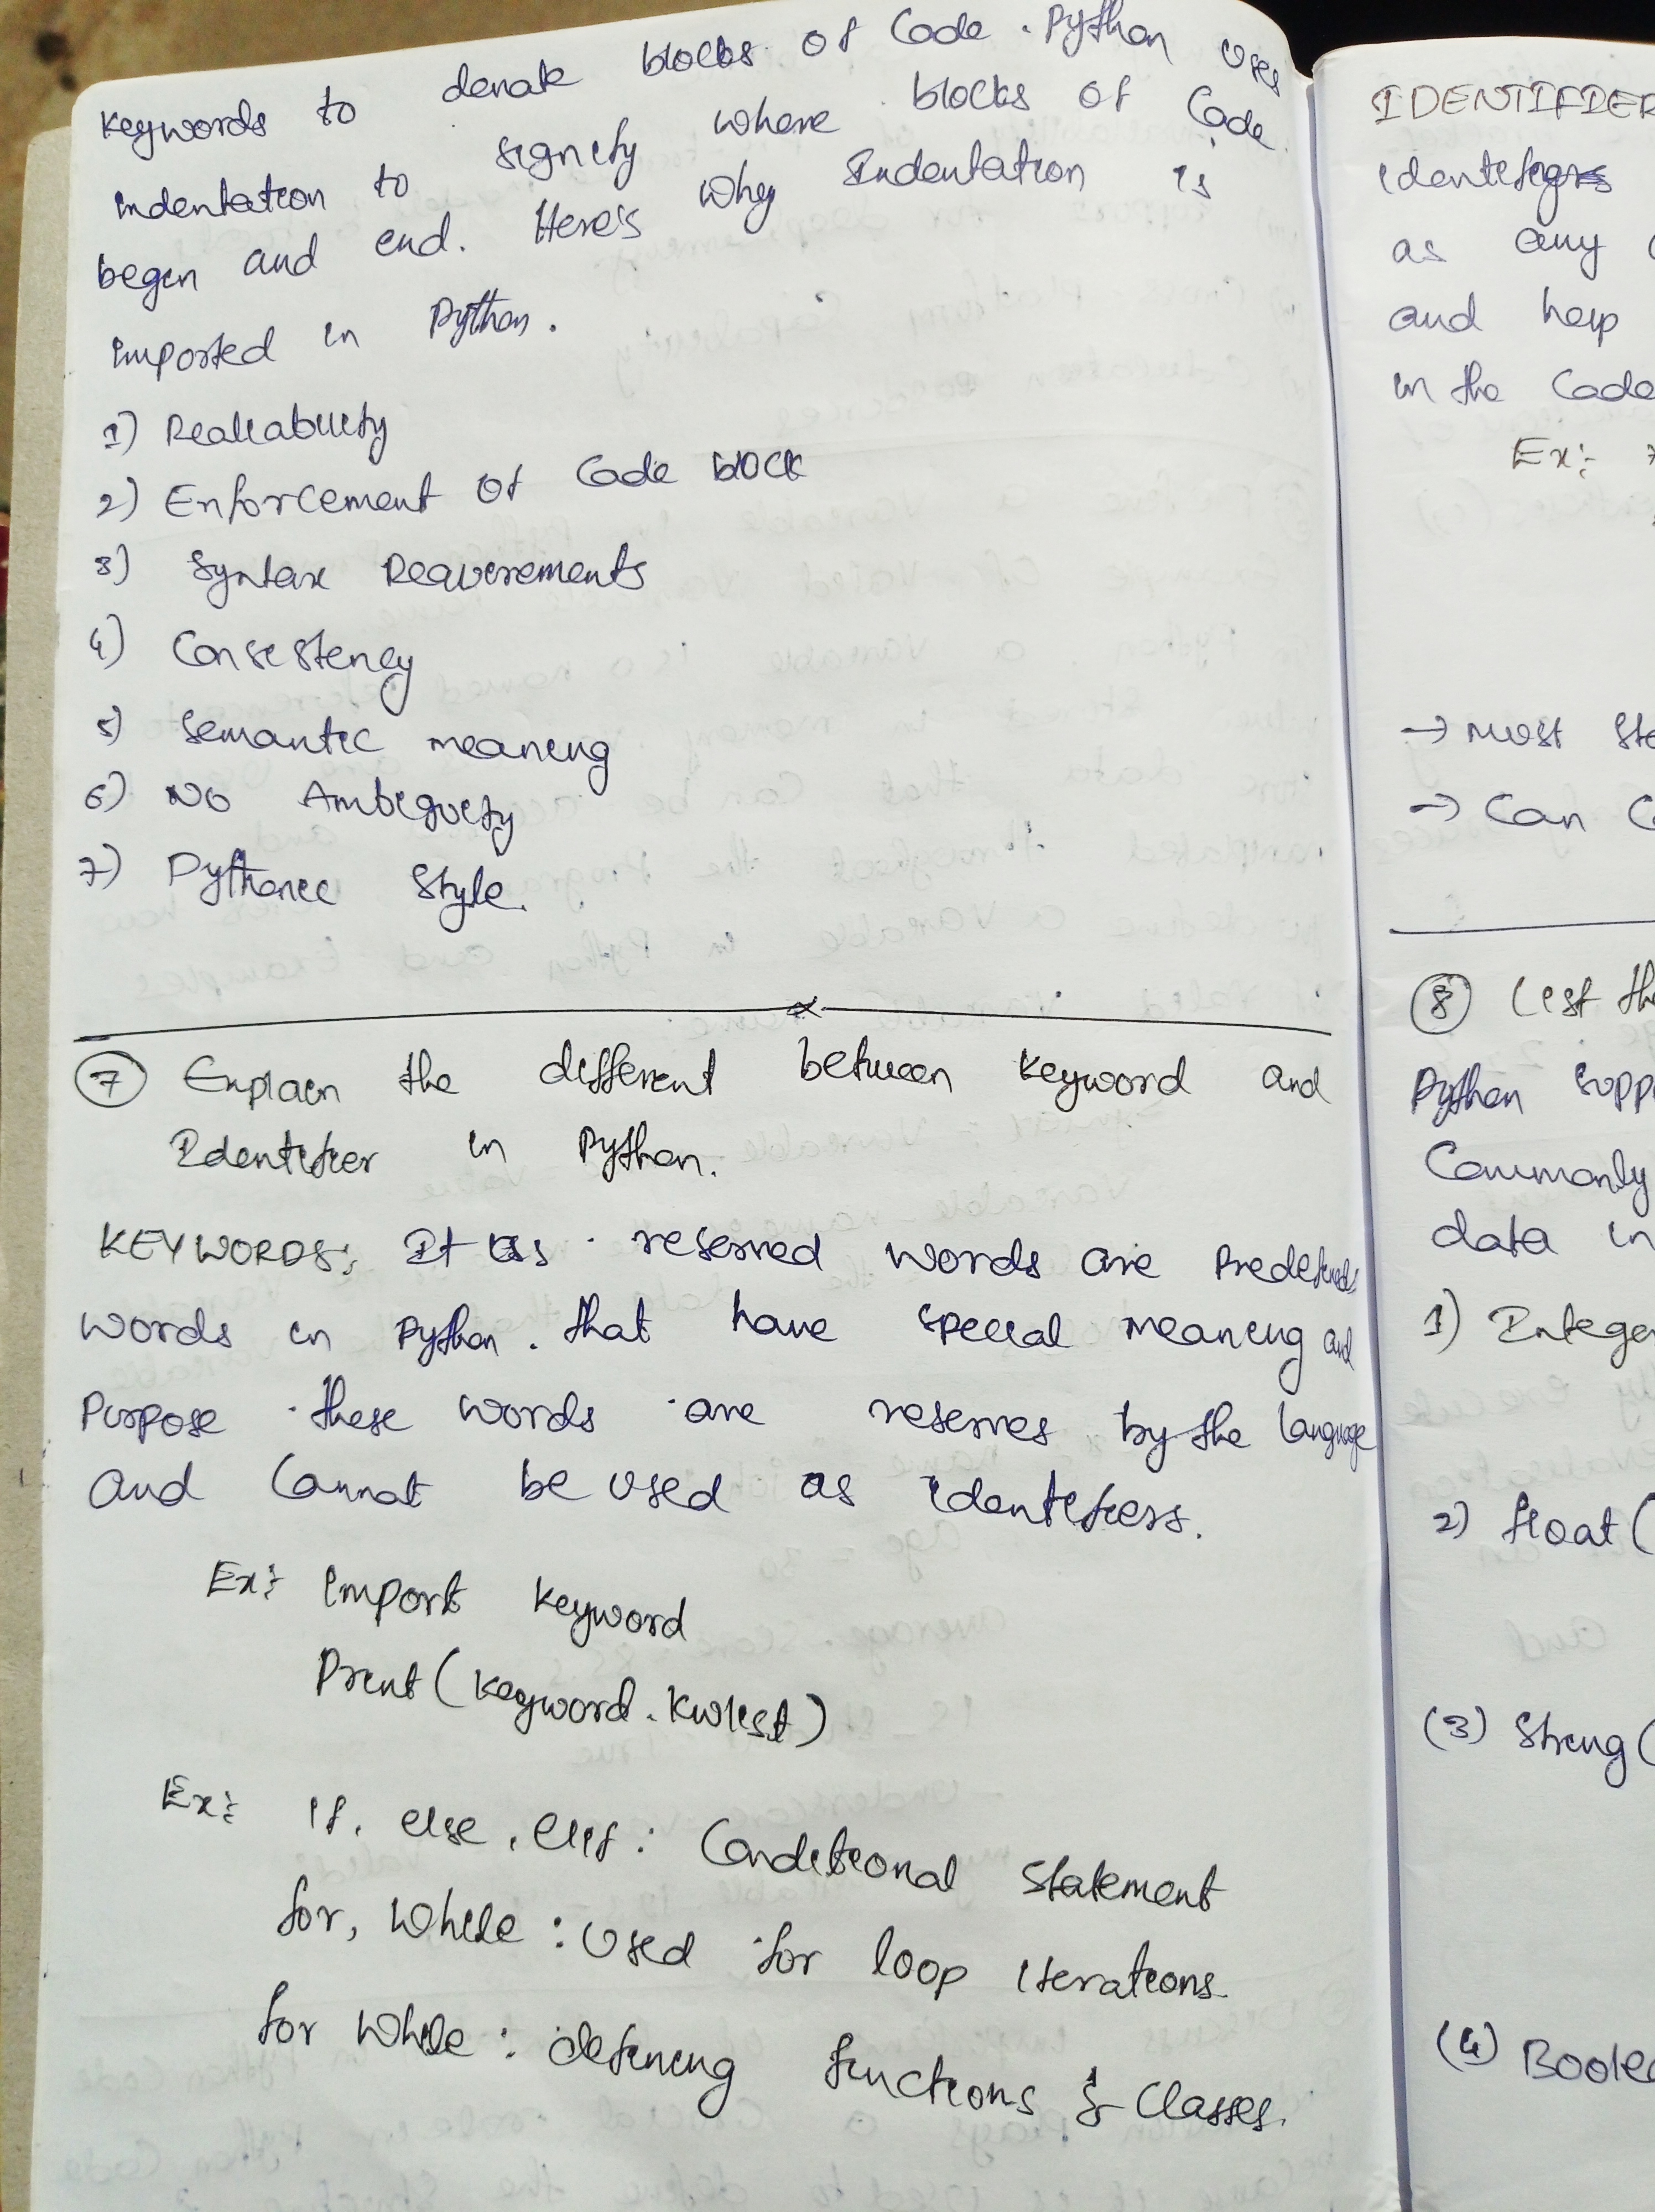 keywords to denote blocks of code . Python uses
indentation to signify where blocks of code
begin and end. Here's why Indentation is
imported in Python.
1) Realiability
2) Enforcement of Code block
3) Syntax Requirements
4) Consistency
5) Semantic meaning
6) No Ambiguity
7) Pythonic Style.
7 Explain the different between keyword and
Identifier in Python.
KEYWORDS: It is reserved words are Predefined
words in Python. that have special meaning and
Purpose these words are reserves by the language
and Cannot be used as identifiers.
Ex: import keyword
Print (keyword.kwlist)
Ex: if, else, elif : Conditional Statement
for, while : Used for loop iterations
for while : defining functions & Classes.
IDENTIFIER
identifiers
as any
and help
in the Code
Ex:
→ must sta
→ Can C
8 List the
Python supp
Commonly
data in
1) Integer
2) float (
(3) String (
(4) Boolea